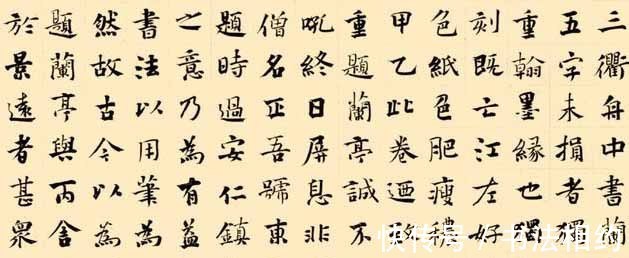 三衢舟中書
五字未損者獨
重翰墨緣也獨
刻既亡江左好
色紙色肥瘦穠
甲乙此卷迺
重題蘭亭誠不
終日屏息非
僧名正吾號東
題時過安仁鎮
之意乃為有益
書法以用筆為
然故古今以為
題蘭亭與丙舍
於景遠者甚衆
快传号/书法相约